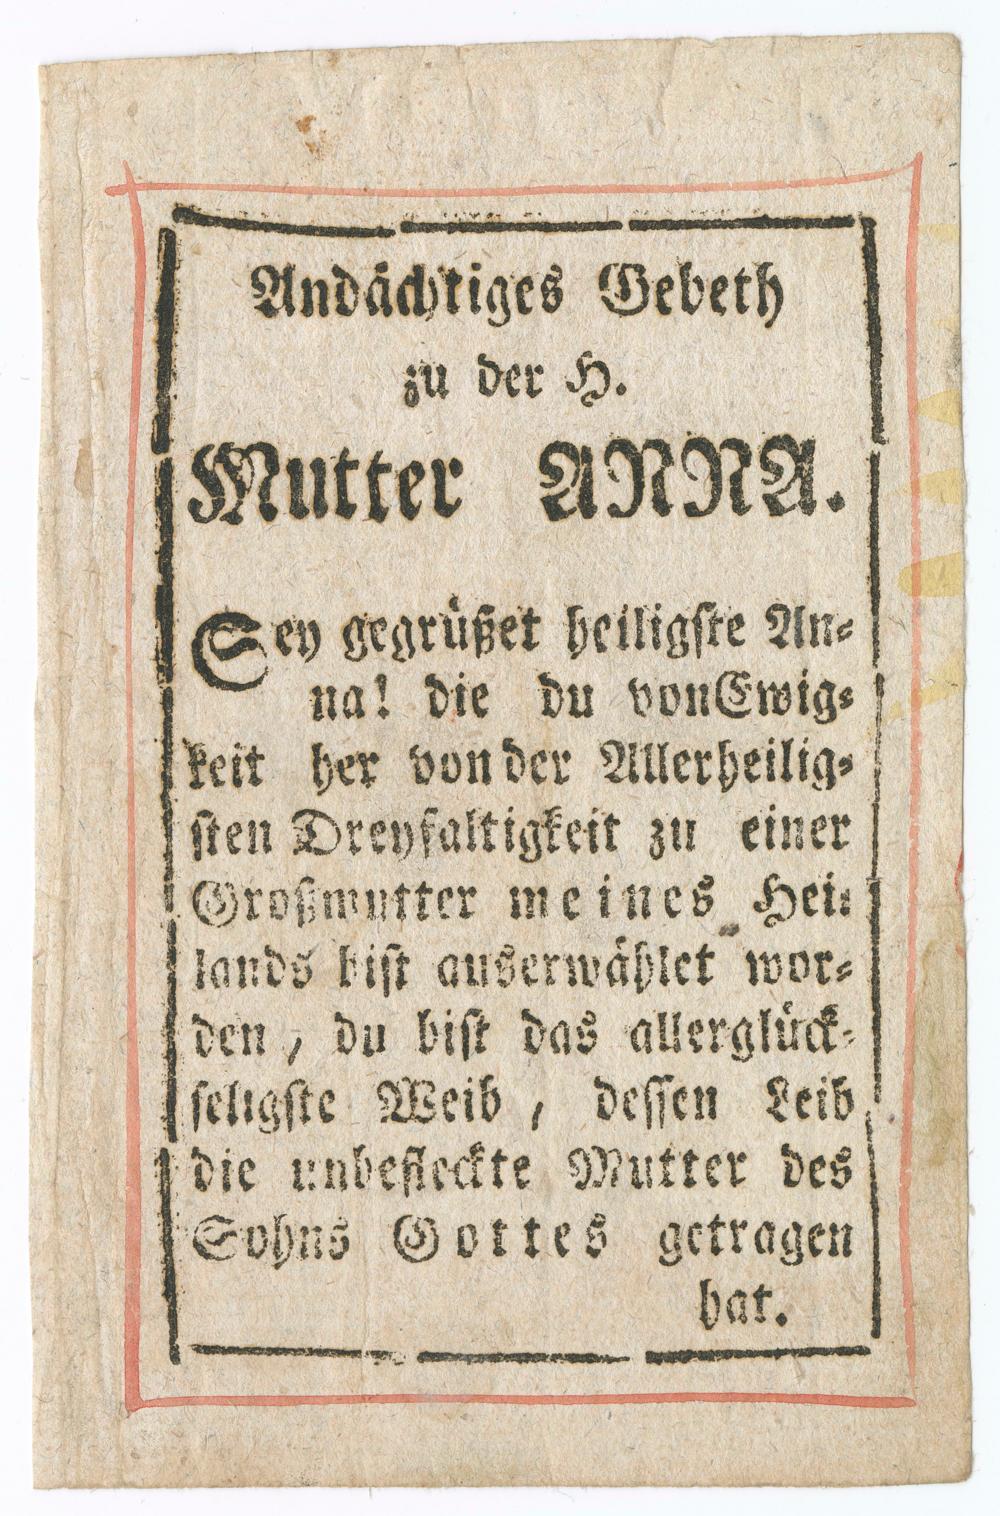 Andächtiges Gebeth
zu der H.
Mutter ANNA.
Sey gegrüßet heiligste An-
na! die du von Ewig-
keit her von der Allerheilig-
sten Dreyfaltigkeit zu einer
Großmutter meines Hei-
lands bist auserwählet wor-
den, du bist das allerglück-
seligste Weib, dessen Leib
die unbefleckte Mutter des
Sohns Gottes getragen
hat.